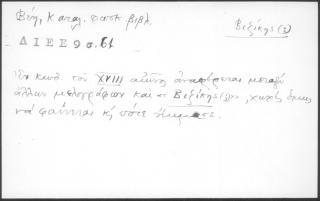 Βέης, Καταλ. φωτ. βιβλ.
Βεζίκης (ς)
Δ Ι Ε Ε 9 σ. 61
κωδ. τοῦ XVIII αἰῶνος ἀναφέρεται μεταξύ
ἄλλων μελογράφων καὶ Βεζίκης, χωρὶς ὅμως
νὰ φαίνεται κ' πότε ἤκμασε.